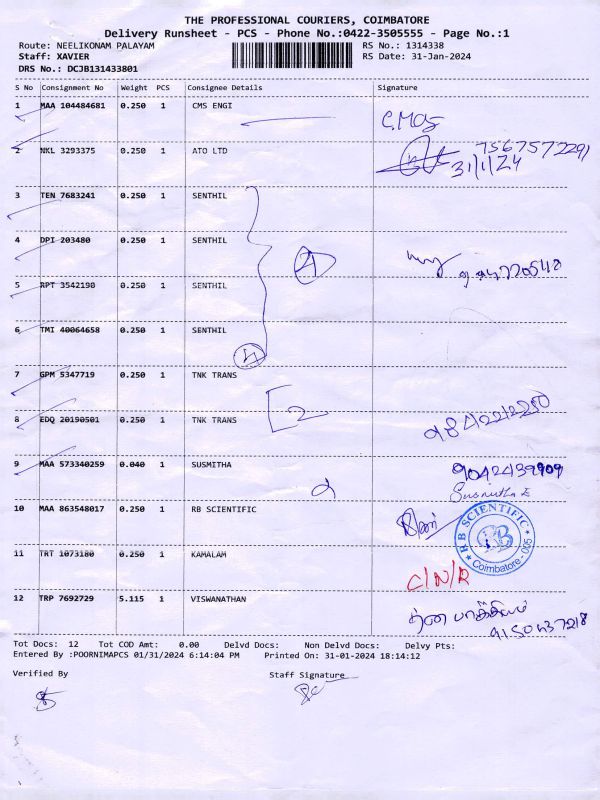 THE PROFESSIONAL COURIERS, COIMBATORE
Delivery Runsheet - PCS - Phone No.:0422-3505555 - Page No.:1
Route: NEELIKONAM PALAYAM RS No.: 1314338
Staff: XAVIER RS Date: 31-Jan-2024
DRS No.: DCJB131433801
S No Consignment No Weight PCS Consignee Details Signature
1 MAA 104484681 0.250 1 CMS ENGI
C.MOS
2 NKL 3293375 0.250 1 ATO LTD 7567572291
31/1/24
3 TEN 7683241 0.250 1 SENTHIL
4 DPI 203480 0.250 1 SENTHIL
4
5 RPT 3542190 0.250 1 SENTHIL
6 TMI 40064658 0.250 1 SENTHIL
4
7 GPM 5347719 0.250 1 TNK TRANS
2
8 EDQ 20190501 0.250 1 TNK TRANS 9842212250
9 MAA 573340259 0.040 1 SUSMITHA 9042439909
Susmitha E
10 MAA 863548017 0.250 1 RB SCIENTIFIC
RB SCIENTIFIC
RB
Coimbatore - 005
11 TRT 1073180 0.250 1 KAMALAM
C/N/R
12 TRP 7692729 5.115 1 VISWANATHAN
9150437218
Tot Docs: 12 Tot COD Amt: 0.00 Delvd Docs: Non Delvd Docs: Delvy Pts:
Entered By :POORNIMAPCS 01/31/2024 6:14:04 PM Printed On: 31-01-2024 18:14:12
Verified By Staff Signature